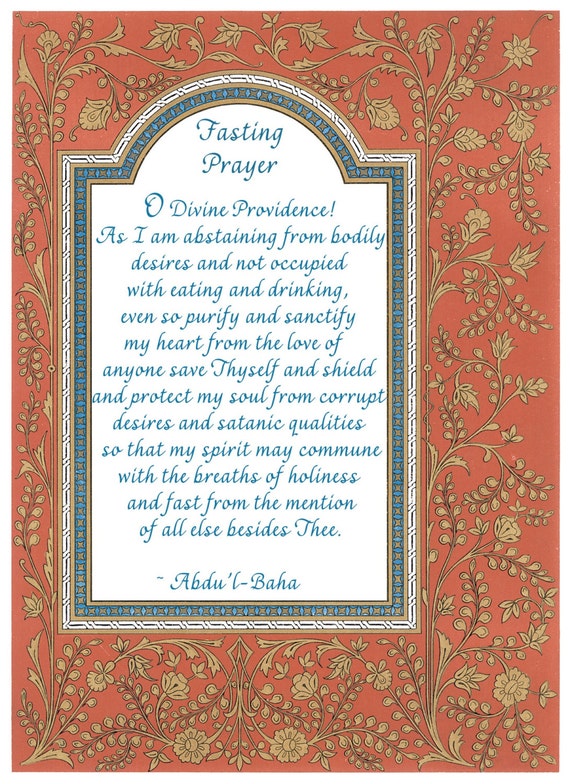 Fasting
Prayer
O Divine Providence!
As I am abstaining from bodily
desires and not occupied
with eating and drinking,
even so purify and sanctify
my heart from the love of
anyone save Thyself and shield
and protect my soul from corrupt
desires and satanic qualities
so that my spirit may commune
with the breaths of holiness
and fast from the mention
of all else besides Thee.
~ Abdu'l-Baha